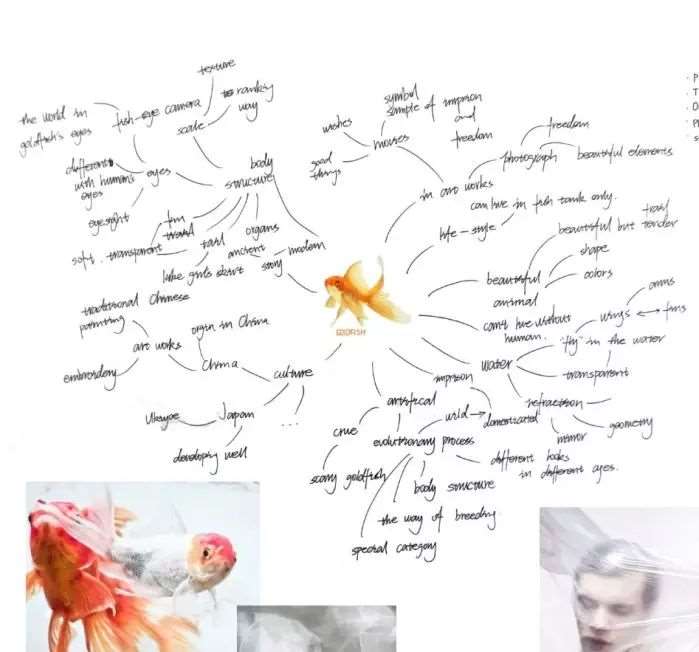 texture
the world in
goldfish's eyes
fish-eye camera
scale
ranking
way
different
with human's
eyes
eyes
eyesight
body
structure
fin
soft
transparent
tail
organs
like girls skirt
ancient
story
modern
traditional Chinese
painting
art works
orgin in China
embroidery
China
culture
Ukiyoe
Japan
...
developing well
symbol
sample of imprison
and
freedom
wishes
movies
good
things
in art works
photograph
freedom
beautiful elements
life-style
can live in fish tank only.
beautiful
animal
beautiful but tender
shape
colors
can't live without
human.
water
"fly" in the water
wings
arms
fins
transparent
refraction
mirror
geometry
imprison
GLODFISH
artifical
crue
evolutionary process
wild
domesticated
scary goldfish
body structure
different looks
in different ages.
the way of breeding
special category
P
T
D
P
S